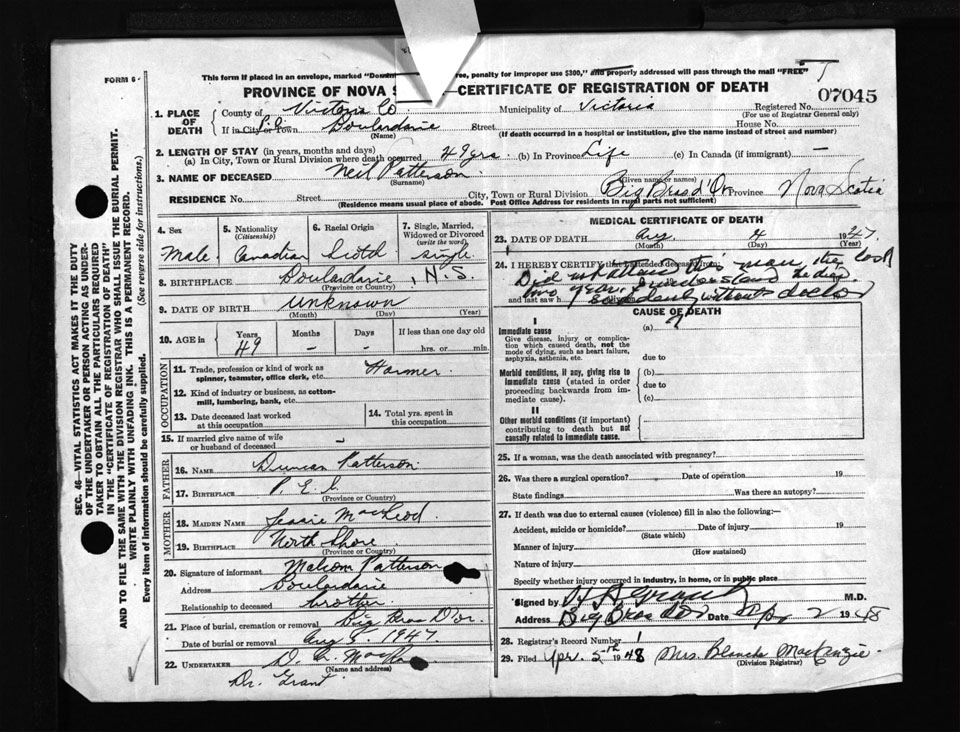 FORM 6
This form if placed in an envelope, marked "Domin ee, penalty for improper use $300," and properly addressed will pass through the mail "FREE"
PROVINCE OF NOVA S —CERTIFICATE OF REGISTRATION OF DEATH
07045
1. PLACE OF DEATH
County of Victoria Co. Municipality of Victoria Registered No.
(For use of Registrar General only)
If in City or Town Boulardarie Street House No.
(Name) (If death occurred in a hospital or institution, give the name instead of street and number)
2. LENGTH OF STAY (in years, months and days)
(a) In City, Town or Rural Division where death occurred 49 yrs. (b) In Province Life (c) In Canada (if immigrant) —
3. NAME OF DECEASED Neil Patterson
(Surname) (Given name or names)
RESIDENCE No. Street City, Town or Rural Division Big Bras d'Or Province Nova Scotia
(Residence means usual place of abode. Post Office Address for residents in rural parts not sufficient)
4. Sex
Male
5. Nationality
(Citizenship)
Canadian
6. Racial Origin
Scotch
7. Single, Married, Widowed or Divorced
(write the word)
single
8. BIRTHPLACE Boulardarie, N.S.
(Province or Country)
9. DATE OF BIRTH unknown
(Month) (Day) (Year)
10. AGE in Years Months Days If less than one day old
49 - - hrs. or min.
OCCUPATION
11. Trade, profession or kind of work as spinner, teamster, office clerk, etc. Farmer
12. Kind of industry or business, as cotton-mill, lumbering, bank, etc.
13. Date deceased last worked at this occupation
14. Total yrs. spent in this occupation
15. If married give name of wife or husband of deceased -
FATHER
16. NAME Duncan Patterson
17. BIRTHPLACE P. E. I.
(Province or Country)
MOTHER
18. MAIDEN NAME Jessie MacLeod
19. BIRTHPLACE North Shore
(Province or Country)
20. Signature of informant Malcom Patterson
Address Boulardarie
Relationship to deceased brother
21. Place of burial, cremation or removal Big Bras D'or.
Date of burial or removal Aug 8. 1947.
22. UNDERTAKER D. A.
(Name and address)
Dr. Grant
MEDICAL CERTIFICATE OF DEATH
23. DATE OF DEATH Aug 4 1947.
(Month) (Day) (Year)
24. I HEREBY CERTIFY that I attended deceased from:
Did not attend this man the last
two years. I understand he died
and last saw h
suddenly without doctor
CAUSE OF DEATH
I
Immediate cause
Give disease, injury or complication which caused death, not the mode of dying, such as heart failure, asphyxia, asthenia, etc.
(a) ?
due to
Morbid conditions, if any, giving rise to immediate cause (stated in order proceeding backwards from immediate cause).
(b)
due to
(c)
II
Other morbid conditions (if important) contributing to death but not causally related to immediate cause.
25. If a woman, was the death associated with pregnancy?
26. Was there a surgical operation? Date of operation 19
State findings Was there an autopsy?
27. If death was due to external causes (violence) fill in also the following:—
Accident, suicide or homicide? Date of injury 19
(State which)
Manner of injury
(How sustained)
Nature of injury
Specify whether injury occurred in industry, in home, or in public place
Signed by Grant M.D.
Address Big Bras dor Date Ap 2 1948
28. Registrar's Record Number 1
29. Filed Apr. 5th 1948 Mrs. Blanche MacKenzie.
(Division Registrar)
SEC. 46—VITAL STATISTICS ACT MAKES IT THE DUTY
OF THE UNDERTAKER OR PERSON ACTING AS UNDER-
TAKER TO OBTAIN ALL THE PARTICULARS REQUIRED
IN THE "CERTIFICATE OF REGISTRATION OF DEATH"
AND TO FILE THE SAME WITH THE DIVISION REGISTRAR WHO SHALL ISSUE THE BURIAL PERMIT.
WRITE PLAINLY WITH UNFADING INK. THIS IS A PERMANENT RECORD.
Every item of information should be carefully supplied. (See reverse side for instructions.)